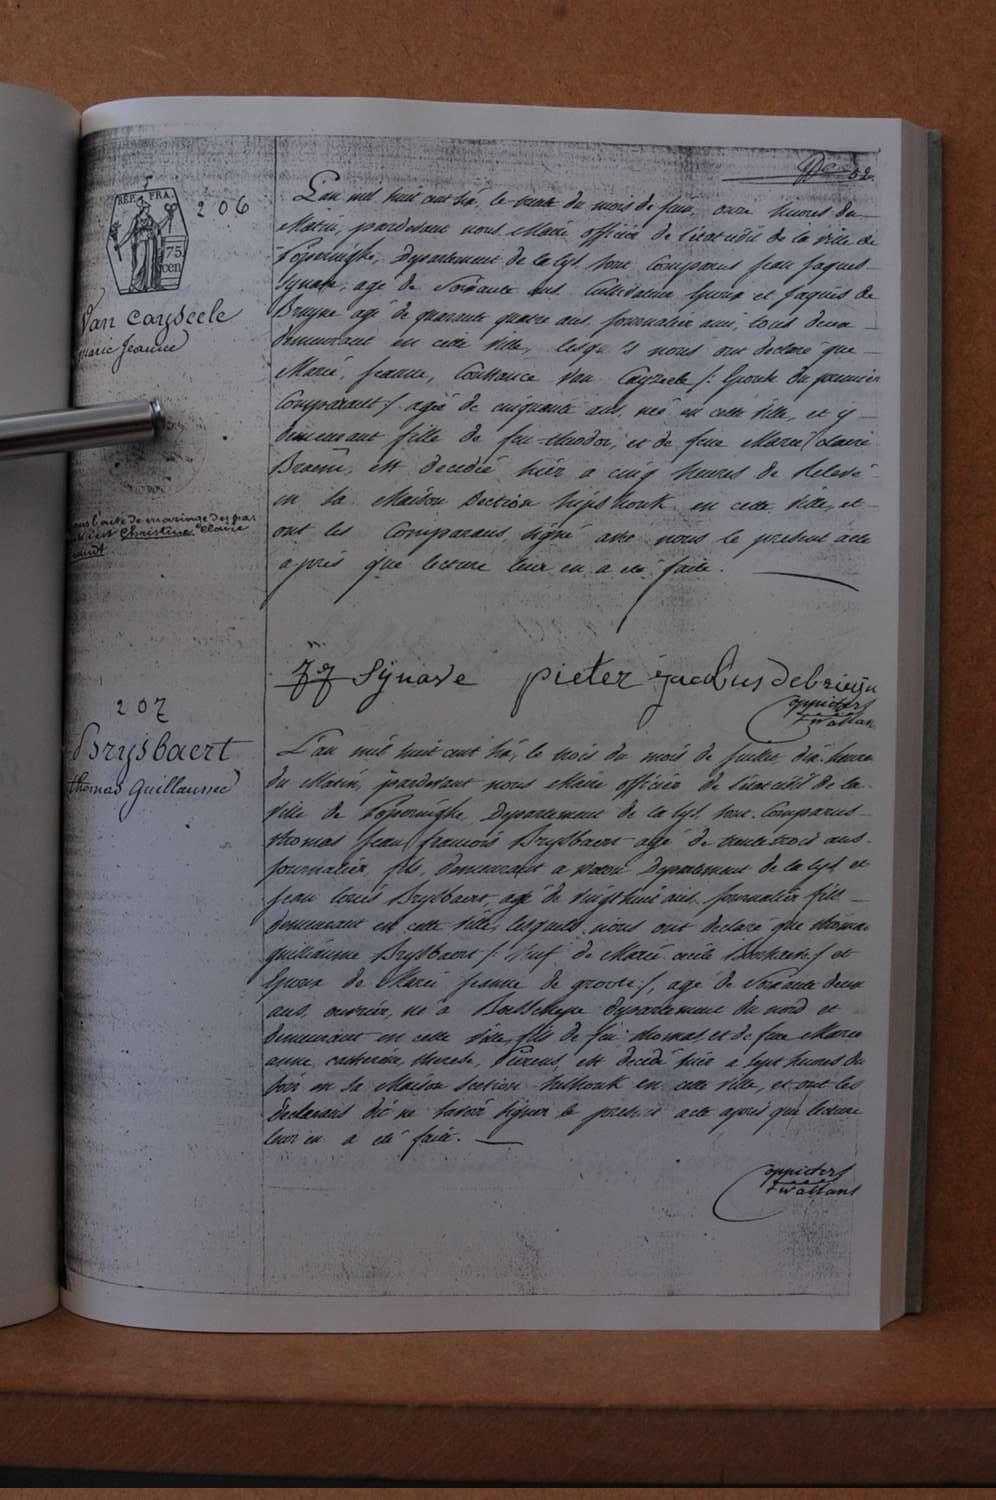 52.
REP. FRA.
75
cen
206
Van cayseele
marie Jeanne
L'an mil huit cent six, le trente du mois de juin, onze heures du
Matin, pardevant nous Maire officier de l'etat civil de la ville de
Poperinghe, Departement de la Lys, sont Comparus Jean Jaques
Synave, agé de Soixante ans Cultivateur Epoux et Jaques de
Bruyne agé de quarante quatre ans, journalier ami, tous deux
demeurant en cette ville, lesquels nous ont declaré que
Marie, Jeanne, Constance Van Cayzeele /: Epouse du premier
Comparant :/ agée de cinquante ans, née en cette ville, et y
demeurant fille de feu et de feue Marie Claire
est decedée hier a cinq heures de Relevé
en sa Maison Section en cette Ville, et
ont les Comparans, signé avec nous le present acte
après que lecture leur en a été faite.
l'acte de mariage des
est Christine Claire
JJ Synave pieter jacobus debruijn
207
Brysbaert
thomas Guillaume
L'an mil huit cent six, le trois du mois de juillet dix heures
du Matin, pardevant nous Maire officier de l'etat civil de la
ville de Poperinghe, Departement de la Lys, sont Comparus
thomas Jean francois Brysbaert agé de trente trois ans
journalier, fils, demeurant a watou Departement de la Lys et
Jean Louis Brysbaert, agé de vingt huit ans, journalier fils
demeurant en cette ville, lesquels nous ont declaré que thomas
guillaume Brysbaert /: Veuf de Marie cecile :/ et
Epoux de Marie Jeanne de groote :/, agé de Soixante deux
ans, ouvrier, né à Boesschepe departement du nord et
demeurant en cette ville, fils de feu thomas, et de feue Marie
anne catherine, therese, est decedé hier a sept heures du
soir en sa Maison Section en cette ville, et ont les
declarans dit ne savoir signer le present acte après que lecture
leur en a été faite.